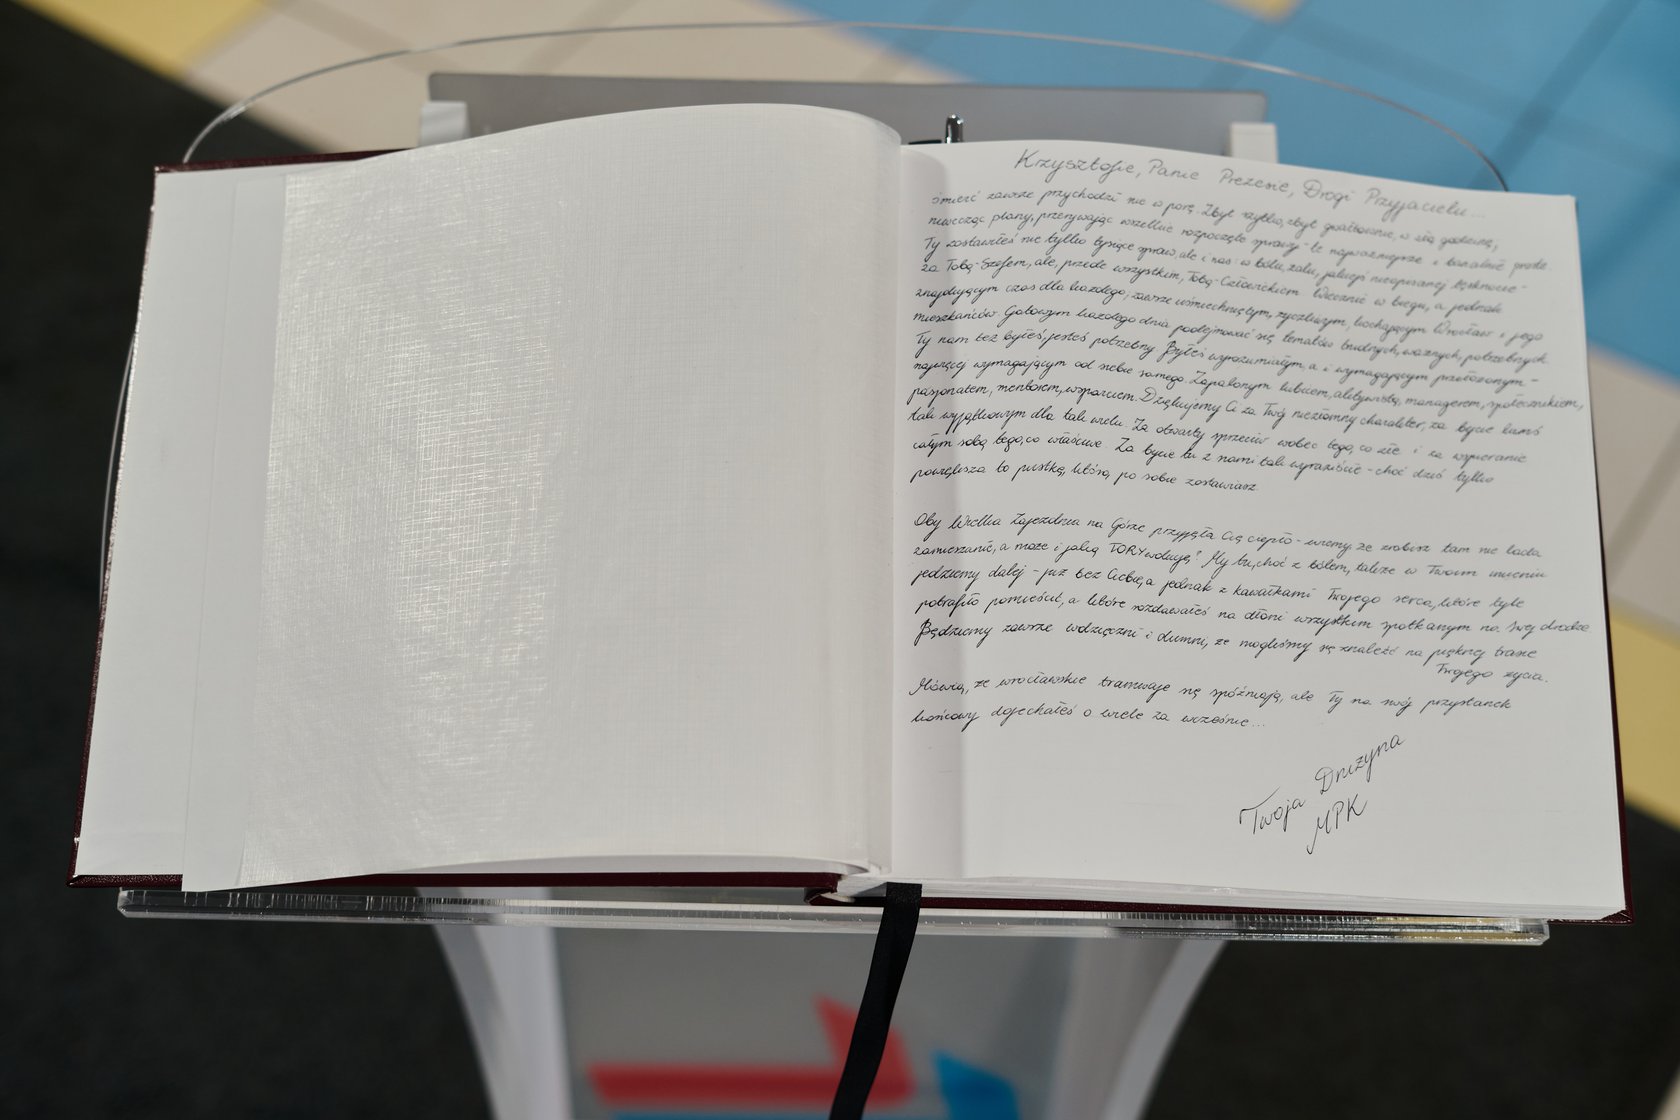 Krzysztofie, Panie Prezesie, Drogi Przyjacielu...
śmierć zawsze przychodzi nie w porę. Zbyt szybko, zbyt gwałtownie, w złą godzinę,
niwecząc plany, przerywając wszelkie rozpoczęte sprawy - te najważniejsze i banalnie proste
Ty zostawiłeś nie tylko tysiące spraw, ale i nas: w bólu, żalu, jakiejś nieopisanej tęsknocie -
za Tobą-Szefem, ale, przede wszystkim, Tobą-Człowiekiem. Wiecznie w biegu, a jednak
znajdującym czas dla każdego, zawsze uśmiechniętym, życzliwym, kochającym Wrocław i jego
mieszkańców. Gotowym każdego dnia podejmować się tematów trudnych, ważnych, potrzebnych.
Ty nam też byłeś, jesteś potrzebny. Byłeś wyrozumiałym, a i wymagającym przełożonym -
najwięcej wymagającym od siebie samego. Zapalonym kibicem, aktywistą, managerem, społecznikiem,
pasjonatem, mentorem, wsparciem. Dziękujemy Ci za Twój niezłomny charakter, za bycie kimś
tak wyjątkowym dla tak wielu. Za otwarty sprzeciw wobec tego, co złe i za wspieranie
całym sobą tego, co właściwe. Za bycie tu z nami tak wyraziście - choć dziś tylko
powiększa to pustkę, którą po sobie zostawiasz.
Oby Wielka Zajezdnia na Górze przyjęła Cię ciepło - wiemy, że zrobisz tam nie lada
zamieszanie, a może i jakąś TORYwolucję? My tu, choć z bólem, także w Twoim imieniu
jedziemy dalej - już bez Ciebie, a jednak z kawałkami Twojego serca, które tyle
potrafiło pomieścić, a które rozdawałeś na dłoni wszystkim spotkanym na swej drodze.
Będziemy zawsze wdzięczni i dumni, że mogliśmy się znaleźć na pięknej trasie
Twojego życia.
Mówią, że wrocławskie tramwaje się spóźniają, ale Ty na swój przystanek
końcowy dojechałeś o wiele za wcześnie...
Twoja Drużyna
MPK